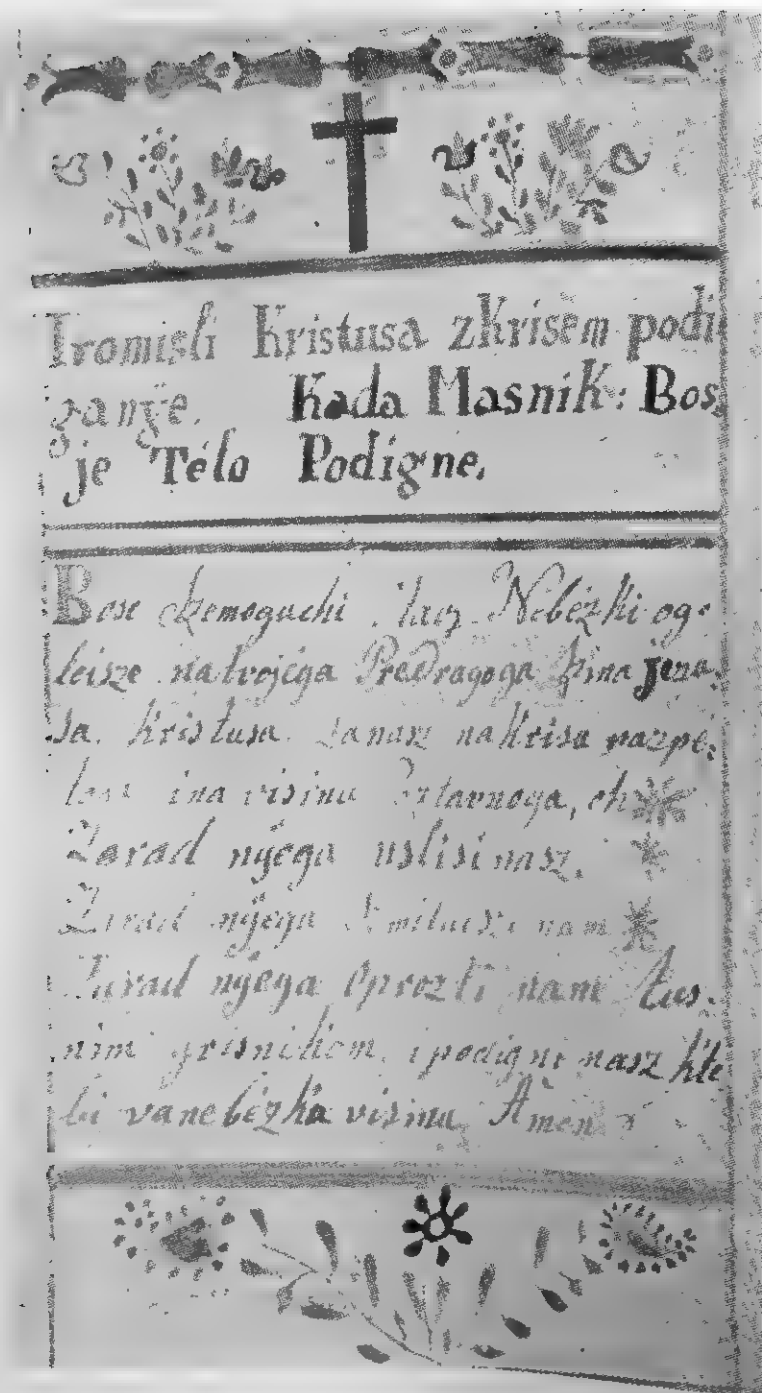 Promisli Kristusa zKrisem podi
ganÿe. Kada Masnik: Bos
je Télo Podigne.
Bose szemoguchi, Otacz Nebézki og-
leisze natvojéga Predragoga Szina jezu-
sa. Kristusa. zanasz nakrisu razpé-
toga inavisinu Posztavnoga, oh
Zarad nÿéga uslisi nasz.
Zarad nÿéga Szmilui sze nam
Zarad nÿéga Oprozti nam Tus-
nim grisnikom, ipodigni nasz kte-
bi vanebézka visinu Amen